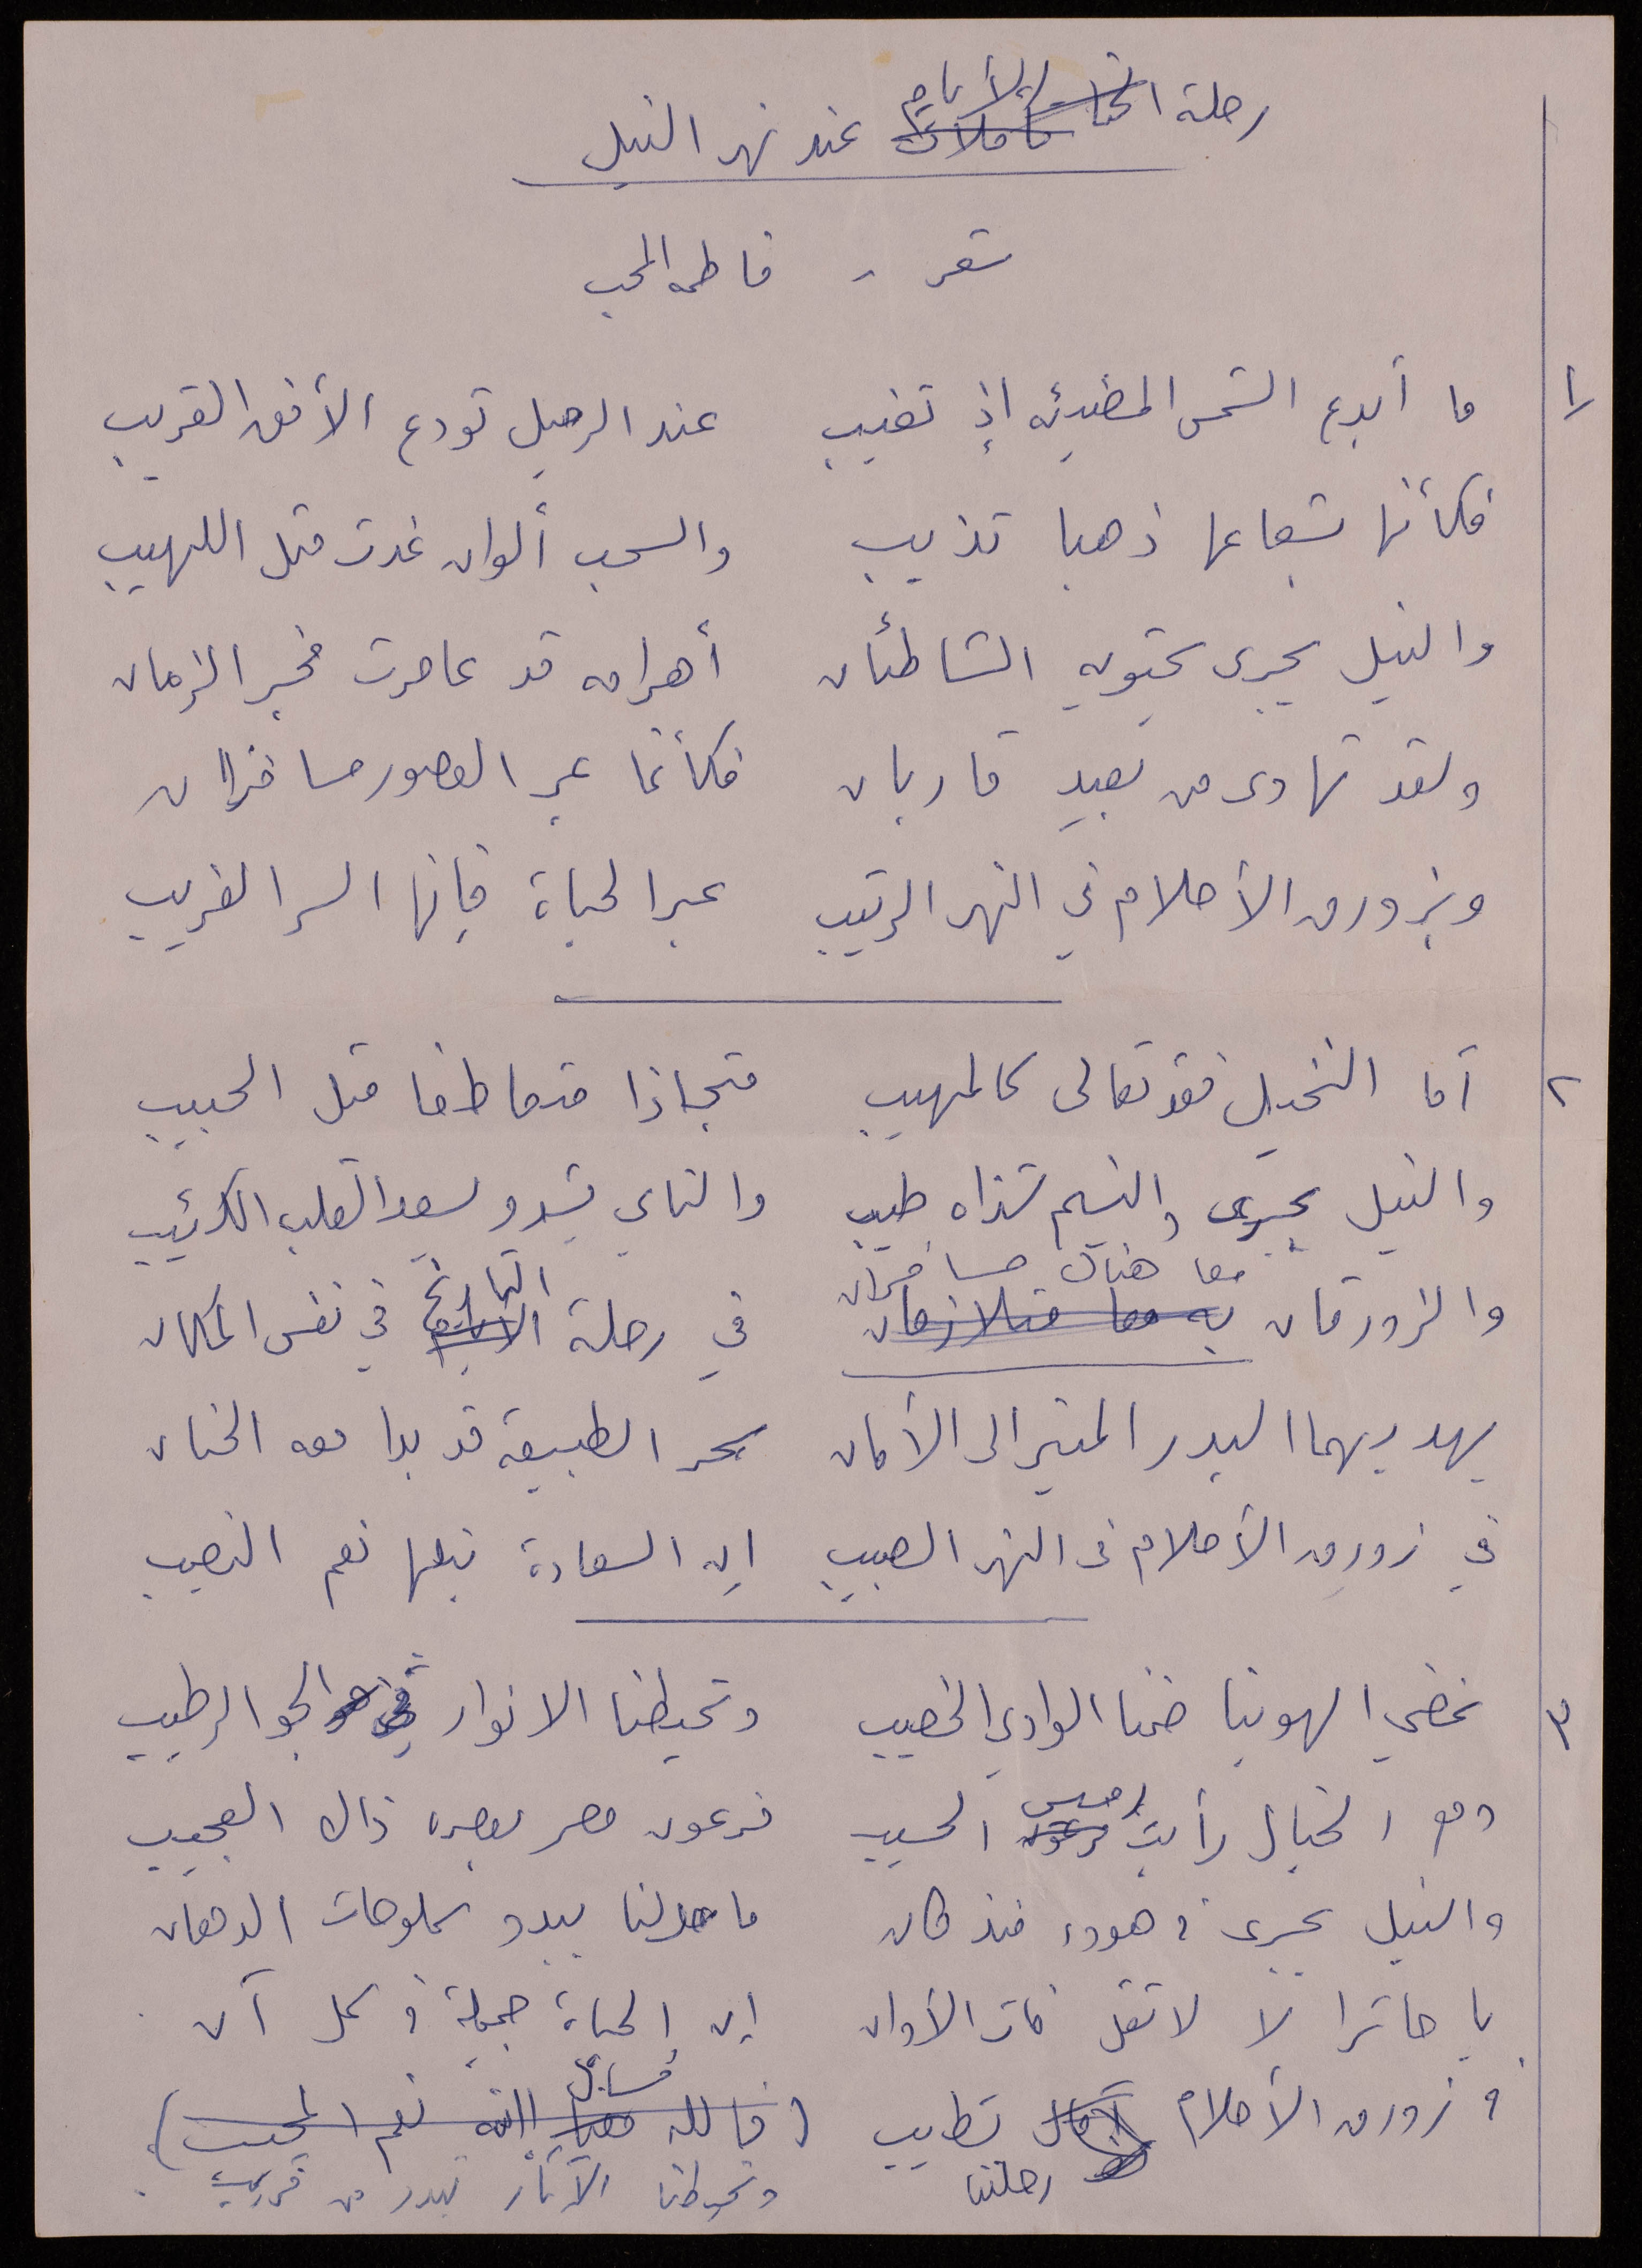 رحلة الأيام عند نهر النيل
تأملات
شعر - فاطمه المحب
١ ما أبدع الشمس المضيئه إذ تغيب عند الرحيل تودع الأفق القريب
فكأنها بشعاعها ذهبا تذيب والسحب ألوان غدت مثل اللهيب
والنيل يجرى يحتويه الشاطئان أهرامه قد عاصرت فجر الزمان
ولقد تهادى من بعيدٍ قاربان فكأنما عبر العصور مسافران
وبزورق الأحلام في النهر الرتيب عبر الحياة فإنها السر الغريب
٢ أما النخيل فقد تعالى كالمهيب متجاذا متعاطفا مثل الحبيب
والنيل يجرى والنسيم شذاه طيب والناى يشدو يسعد القلب الكئيب
معا هناك مسافران التاريخ
والزورقان به معا متلازمان في رحلة الأيام في نفس المكان
يهديهما البدر المنير الى الأمان سحر الطبيعة قد بدا معه الحنان
في زورق الأحلام فى النهر الصبيب إن السعادة نبلها نعم النصيب
٣ نمضي الهوينا ضمنا الوادي الخصيب وتحيطنا الانوار في الجو الرطيب
رمسيس
ومع الخيال رأيت فرعون الحسيب فرعون مصر بعصره ذاك العجيب
والنيل يجرى في هدوء منذ كان ما حولنا يبدو كلوحات الدهان
يا حائرا لا لا تقل فات الأوان إن الحياة جميلة في كل آن
فسائل
في زورق الأحلام تطيب (فالله الله نعم المجيب)
رحلتنا وتحوطنا الآثار تبدو من قريب